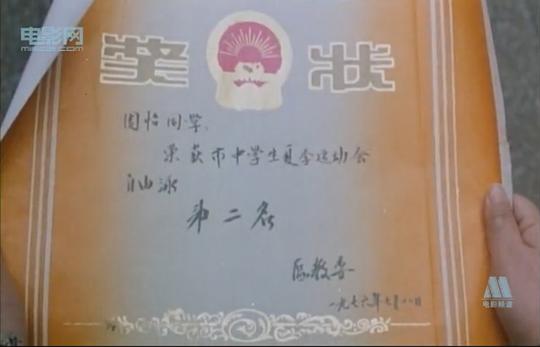 电影网
奖状
周怡同学:
荣获市中学生夏季运动会
自由泳
第二名
区教委
一九七六年七月八日
电影频道